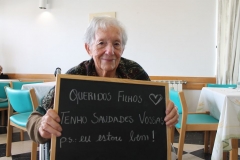 QUERIDOS FILHOS ♡
TENHO SAUDADES VOSSAS
ps: eu estou bem!